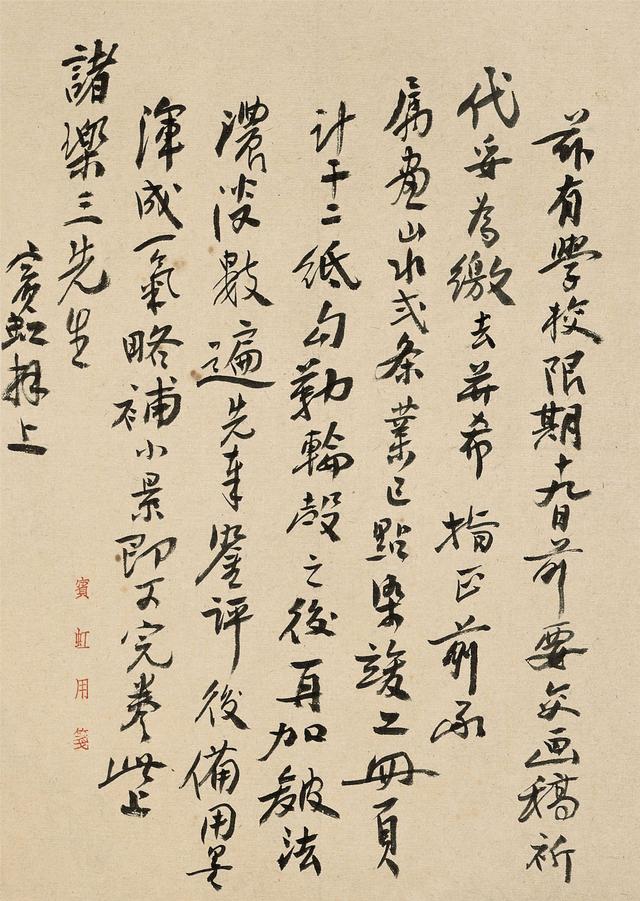 兹有學校限期十九日前要交画稿祈
代妥為繳去并希 指正前承
属畫山水弍条業已點染竣工冊頁
计十二紙勾勒輪殻之後再加皴法
濃淡數遍先奉鑒評後備用墨
渾成一氣略補小景即可完卷此上
諸樂三先生
賓虹拜上
賓虹用箋